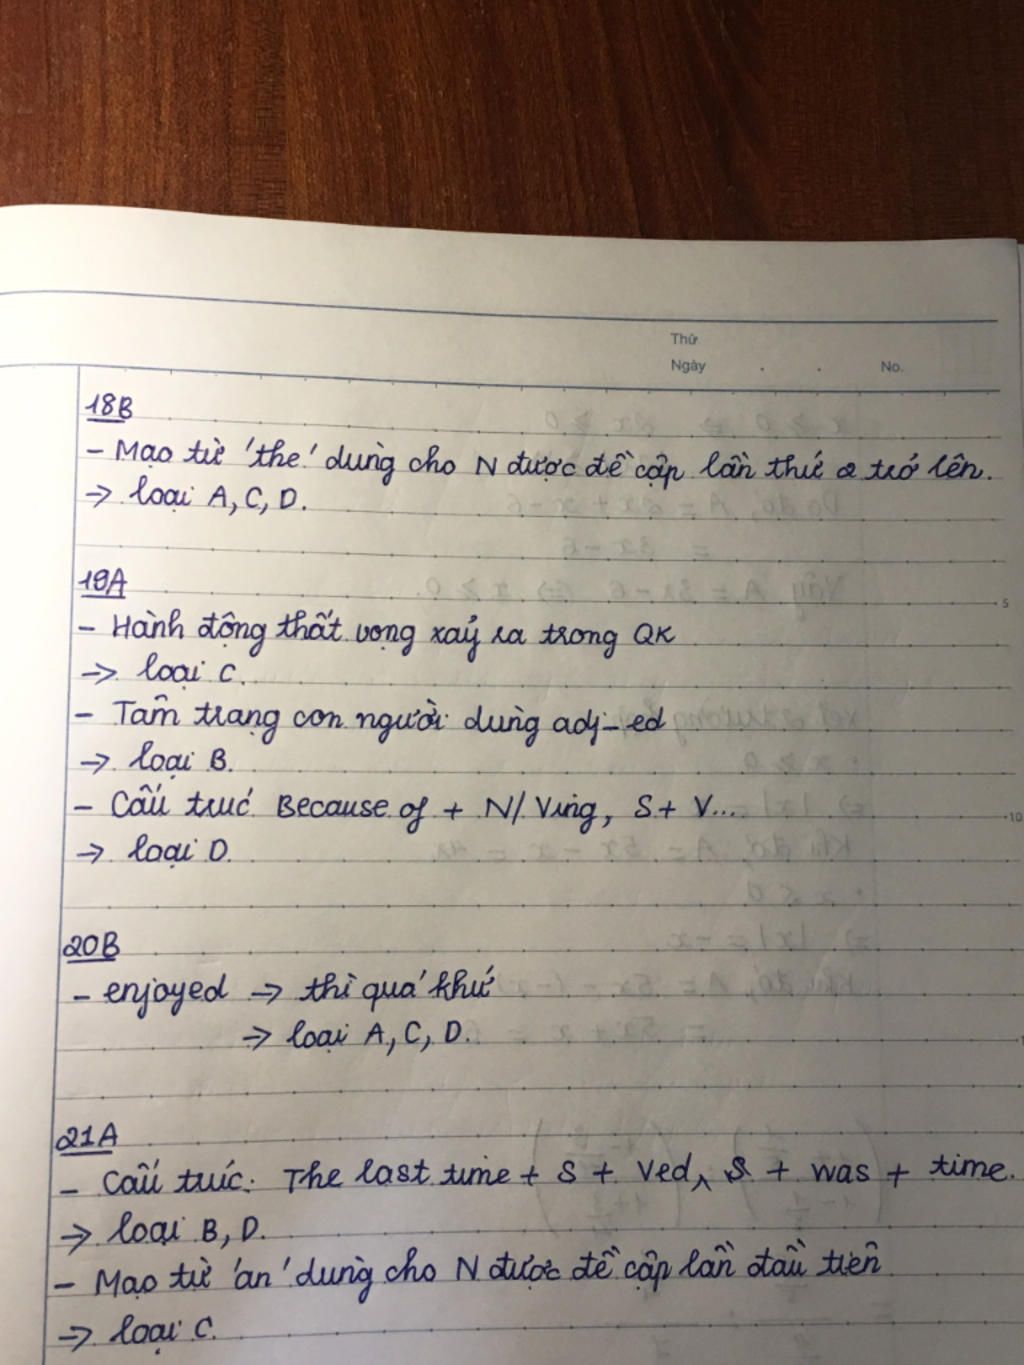 Thứ
Ngày . . No.
18B
- Mạo từ 'the' dùng cho N được đề cập lần thứ 2 trở lên.
→ loại A, C, D.
19A
5
- Hành động thất vọng xảy ra trong QK
→ loại C.
- Tâm trạng con người dùng adj-ed
→ loại B.
- Cấu trúc Because of + N/Ving, S + V...
10
→ loại D.
20B
- enjoyed → thì quá khứ
→ loại A, C, D.
21A
- Cấu trúc: The last time + S + Ved, S + was + time.
→ loại B, D.
- Mạo từ 'an' dùng cho N được đề cập lần đầu tiên
→ loại C.